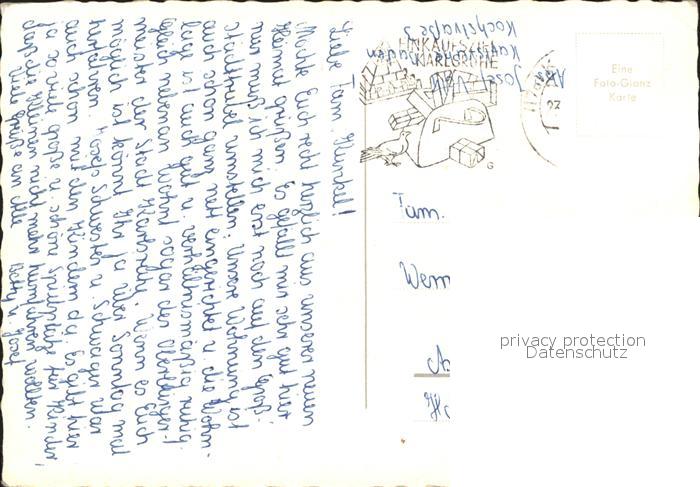 Liebe Fam. Kunkel!
Möchte Euch recht herzlich aus unserer neuen
Heimat grüßen. Es gefällt mir sehr gut hier
nur muß ich mich erst noch auf den Groß-
stadttrubel umstellen. Unsere Wohnung ist
auch schon ganz nett eingerichtet u. die Wohn-
lage ist auch gut u. verhältnismäßig ruhig.
Gleich nebenan wohnt sogar der Oberbürger-
meister der Stadt Karlsruhe. Wenn es Euch
möglich ist könnt Ihr ja über Sonntag mal
herfahren. Josefs Schwester u. Schwager war
auch schon mit den Kindern da. Es gibt hier
ja so viele große u. schöne Spielplätze für Kinder
daß die Kleinen nicht mehr heimfahren wollten.
Viele Grüße an alle
Betty u. Josef
Abs.
Josef
Karlsruhe
Kochstraße 3
EINKAUFSZENTRUM
KARLSRUHE
G
Eine
Foto-Glanz
Karte
Fam.
Wern
privacy protection
Datenschutz